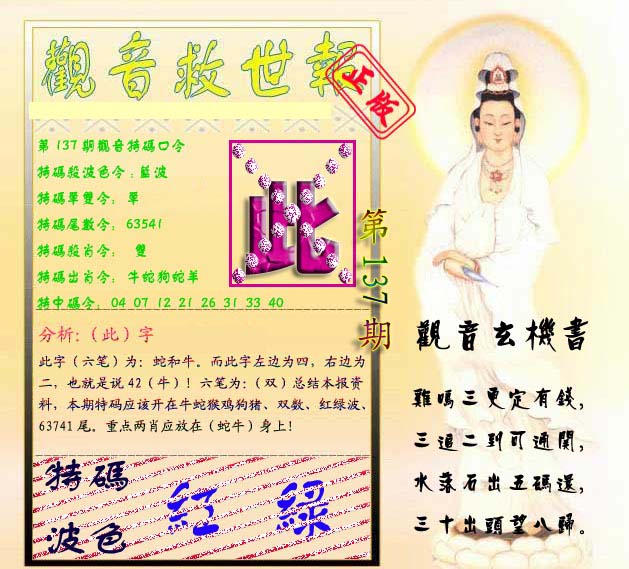 觀音救世報
正版
第137期觀音特碼口令
特碼殺波色令:藍波
特碼單雙令: 單
特碼尾數令: 63541
特碼殺肖令: 雙
特碼出肖令: 牛蛇狗蛇羊
特中碼令: 04 07 12 21 26 31 33 40
此
第137期
分析:（此）字
此字（六笔）为：蛇和牛。而此字左边为四，右边为
二，也就是说 42（牛）！六笔为：（双）总结本报资
料，本期特码应该开在牛蛇猴鸡狗猪、双数、红绿波、
63741 尾。重点两肖应放在（蛇牛）身上!
特碼
波色
紅 綠
觀音玄機書
雞鳴三更定有錢,
三追二到可通關,
水落石出五碼還,
三十出頭望八歸。